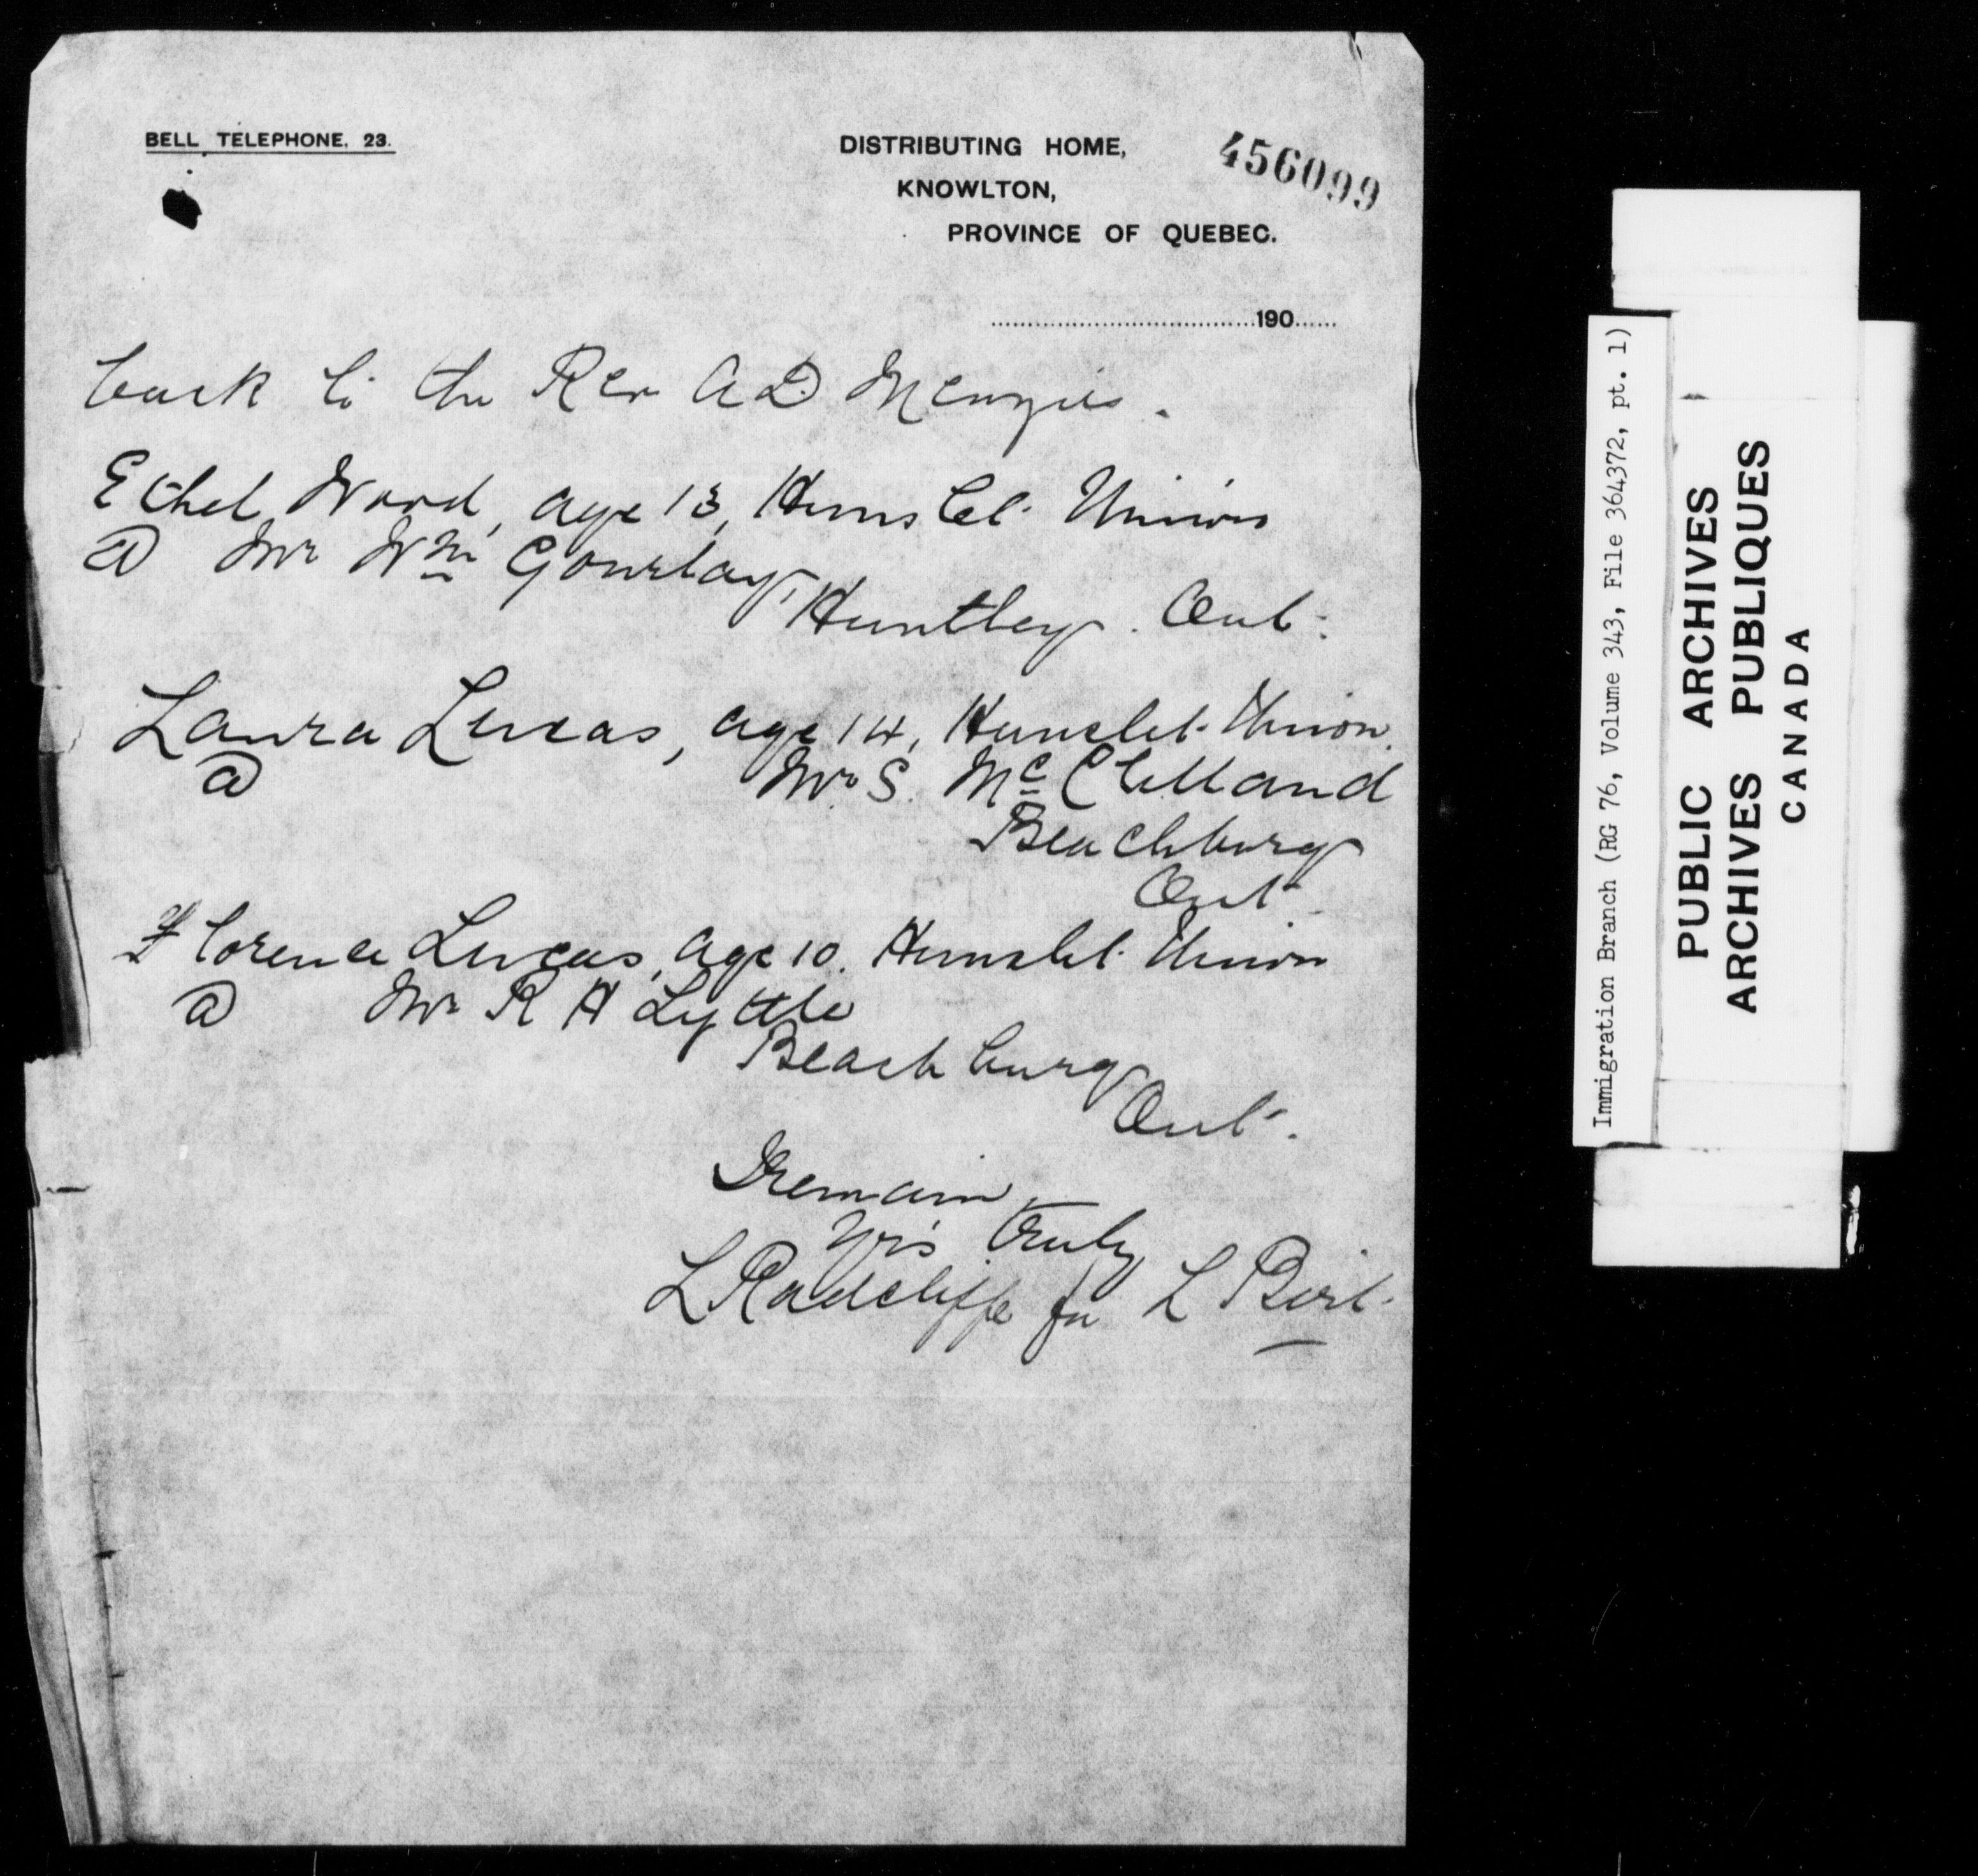 BELL TELEPHONE. 23.
DISTRIBUTING HOME,
KNOWLTON,
PROVINCE OF QUEBEC.
456099
190
back to the Rev A D Menzies.
Ethel Ward, age 13, Hunslet Union
@ Mr Wm Gourlay,
Huntley. Ont.
Laura Lucas, age 14, Hunslet Union.
@ Mr S. McClelland
Beachburg
Ont
Florence Lucas, age 10. Hunslet Union
@ Mr R H Lyttle
Beachburg
Ont.
I remain
Yrs truly
L Radcliffe for L Birt.
Immigration Branch (RG 76, Volume 343, File 364372, pt. 1)
PUBLIC ARCHIVES
ARCHIVES PUBLIQUES
CANADA